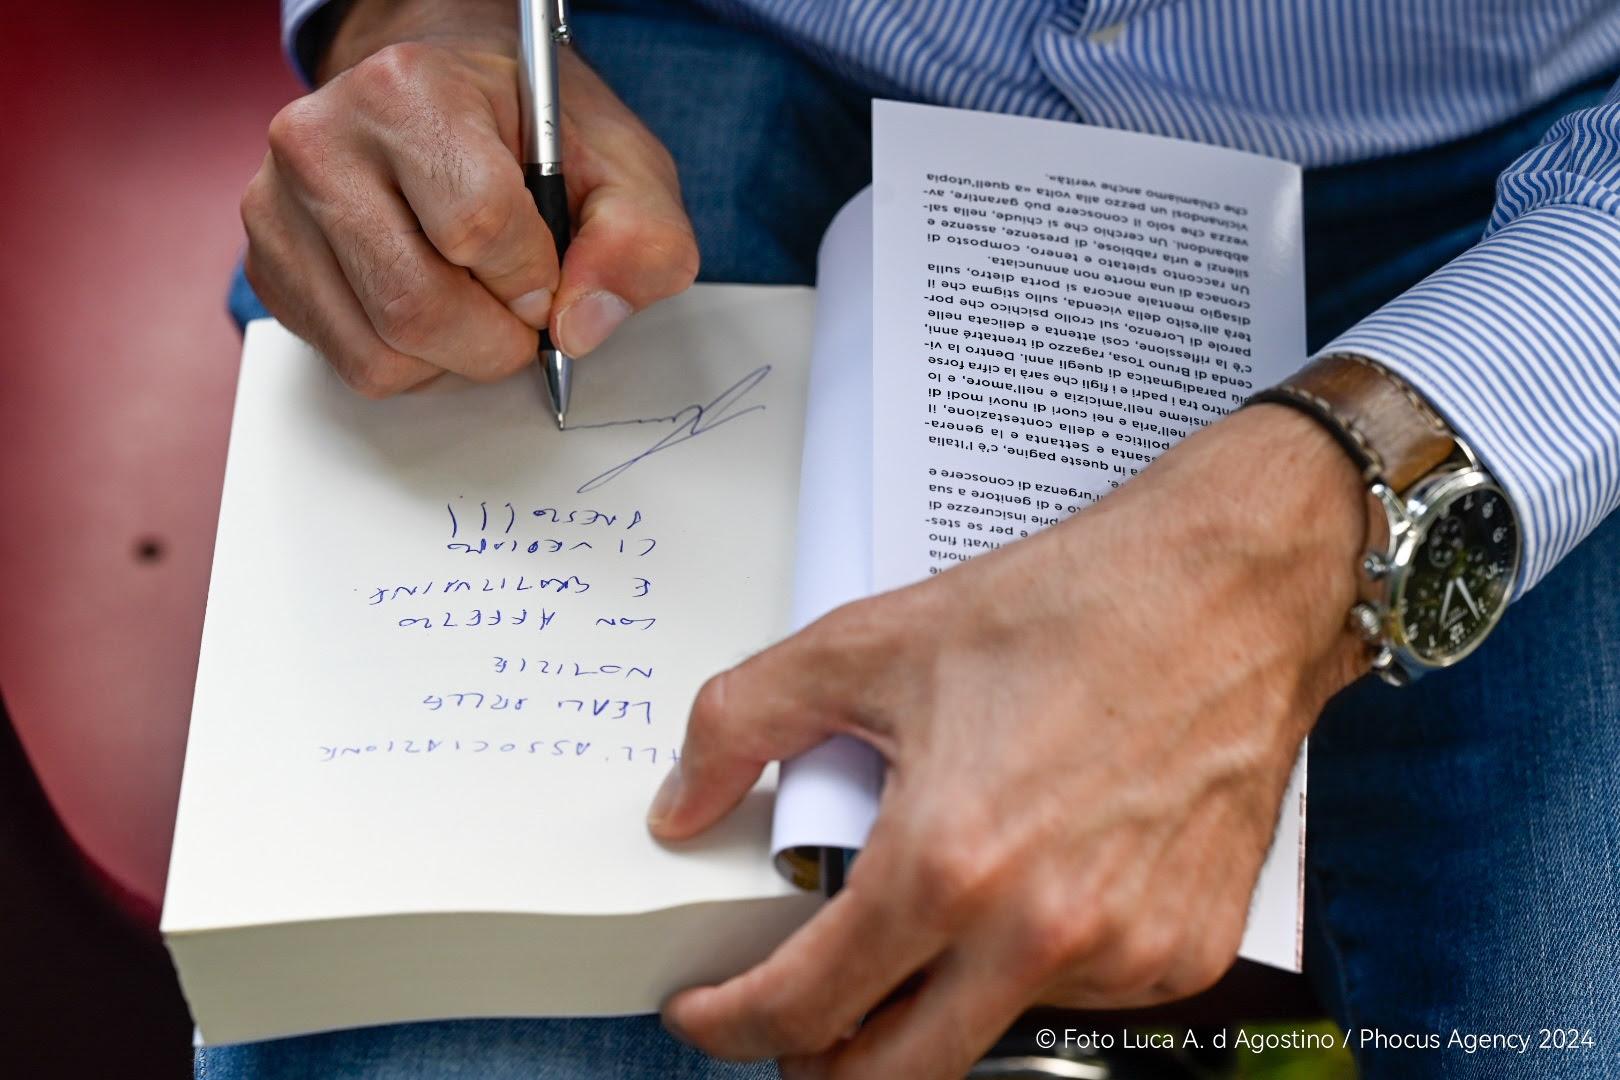 ALL'ASSOCIAZIONE
LEALI DELLE
NOTIZIE
CON AFFETTO
E GRATITUDINE.
CI VEDIAMO
PRESTO!!!
privati fino
e per se stes-
prie insicurezze di
to e di genitore a sua
l'urgenza di conoscere e
in queste pagine, c'è l'Italia
ssanta e Settanta e la genera-
politica e della contestazione, il
nell'aria e nei cuori di nuovi modi di
insieme nell'amicizia e nell'amore, e lo
ntro tra i padri e i figli che sarà la cifra forse
più paradigmatica di quegli anni. Dentro la vi-
cenda di Bruno Tosa, ragazzo di trentatré anni,
c'è la riflessione, così attenta e delicata nelle
parole di Lorenzo, sul crollo psichico che por-
terà all'esito della vicenda, sullo stigma che il
disagio mentale ancora si porta dietro, sulla
cronaca di una morte non annunciata.
Un racconto spietato e tenero, composto di
silenzi e urla rabbiose, di presenze, assenze e
abbandoni. Un cerchio che si chiude, nella sal-
vezza che solo il conoscere può garantire, av-
vicinandosi un pezzo alla volta «a quell'utopia
che chiamiamo anche verità».
© Foto Luca A. d Agostino / Phocus Agency 2024